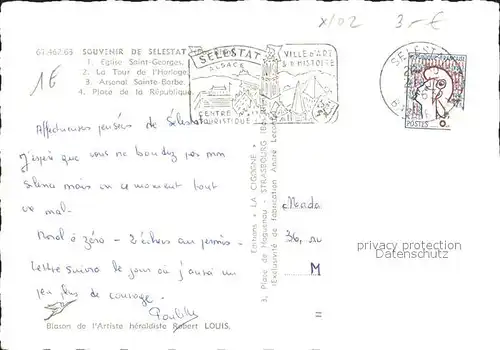 x/02 3.-€
1€
67.462.63 SOUVENIR DE SELESTAT
1. Eglise Saint-Georges.
2. La Tour de l'Horloge.
3. Arsenal Sainte-Barbe
4. Place de la République.
SELESTAT
ALSACE
CENTRE
TOURISTIQUE
VILLE d'ART
& D'HISTOIRE
SELEST
POSTES
Affectueuses pensées de Sélestat
J'espère que vous ne boudez pas mon
silence mais en ce moment tout
va mal.
Moral à zéro - 2 échecs au permis -
Lettre suivra le jour où j'aurai un
peu plus de courage.
Blason de l'Artiste héraldiste Robert LOUIS.
Editions "LA CIGOGNE"
3, Place de Haguenau - STRASBOURG
(Exclusivité de fabrication André Leconte
36, rue
M
privacy protection
Datenschutz